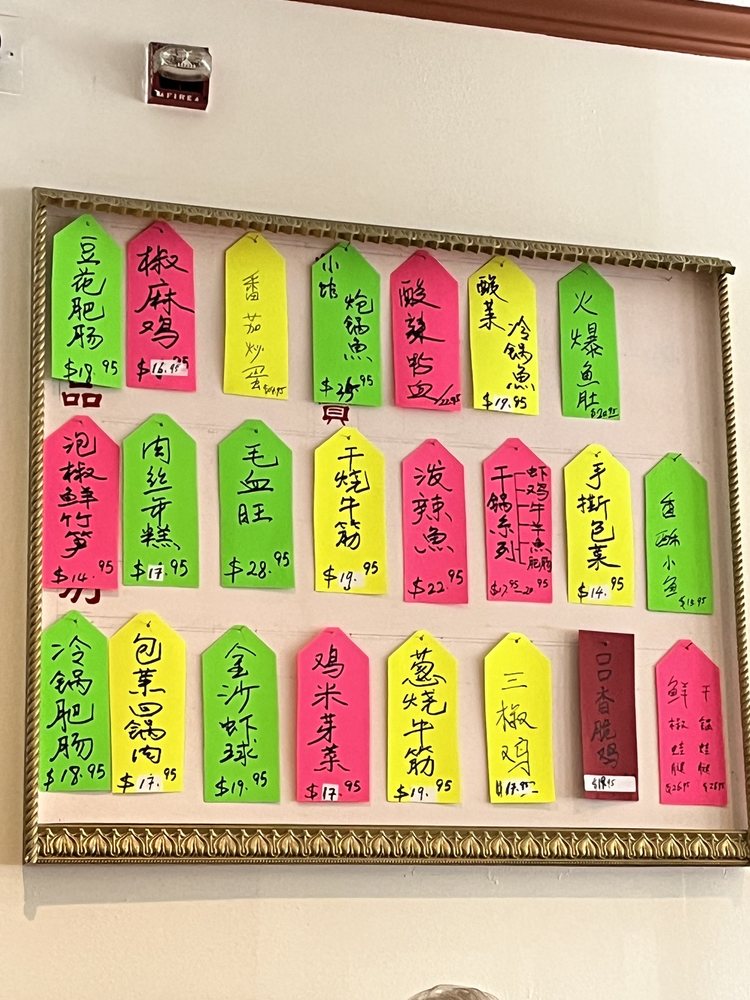 FIRE
豆花肥肠
$18.95
椒麻鸡
$16.95
番茄炒蛋
小馆
炝锅魚
酸辣粉血
22.95
酸菜
冷锅魚
$19.95
火爆鱼肚
$20.95
品
泡椒鲜竹笋
$14.95
肉丝年糕
$17.95
毛血旺
$28.95
干烧牛筋
$19.95
泼辣魚
$22.95
干锅系列
虾
鸡
牛
羊
魚
肥肠
手撕包菜
$14.95
香酥小鱼
$15.95
别
冷锅肥肠
$18.95
包菜回锅肉
$17.95
金沙虾球
$19.95
鸡米芽菜
$17.95
葱烧牛筋
$19.95
三椒鸡
17.95
口口香脆鸡
$18.95
鲜椒蛙腿
干锅蛙腿